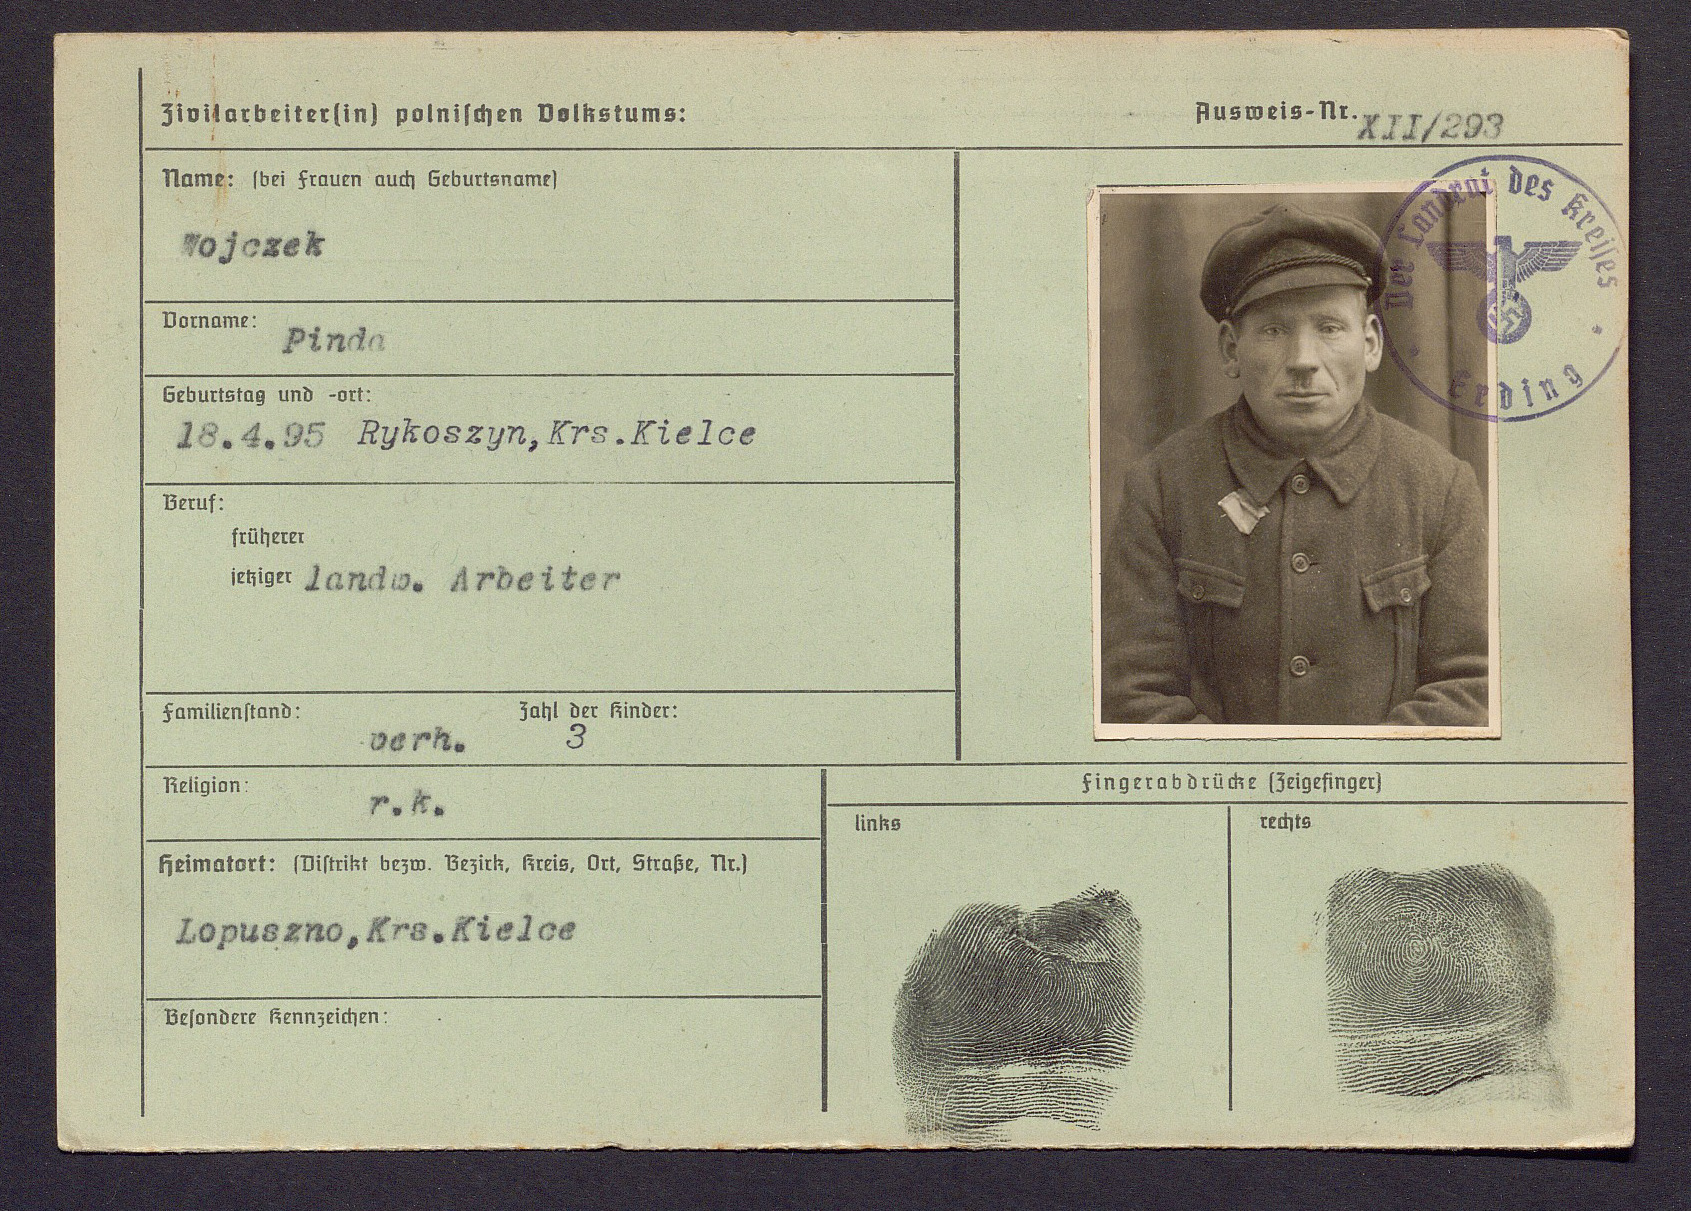 Zivilarbeiter(in) polnischen Volkstums:
Ausweis-Nr. XII/293
Name: (bei Frauen auch Geburtsname)
Wojczek
Vorname: Pinda
Geburtstag und -ort:
18.4.95 Rykoszyn,Krs.Kielce
Beruf:
früherer
jetziger landw. Arbeiter
Familienstand: verh. Zahl der Kinder: 3
Religion: r.k.
Heimatort: (Distrikt bezw. Bezirk, Kreis, Ort, Straße, Nr.)
Lopuszno,Krs.Kielce
Besondere Kennzeichen:
Der Landrat des Kreises
Erding
Fingerabdrücke (Zeigefinger)
links
rechts